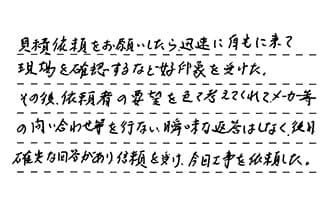 見積依頼をお願いしたら迅速に見に来て
現場を確認するなど好印象を受けた。
その後、依頼者の要望を考えてくれてメーカー等
の問い合わせ等を行ない曖昧な返答はしなく、後日
確実な回答があり信頼を受け、今回工事を依頼した。